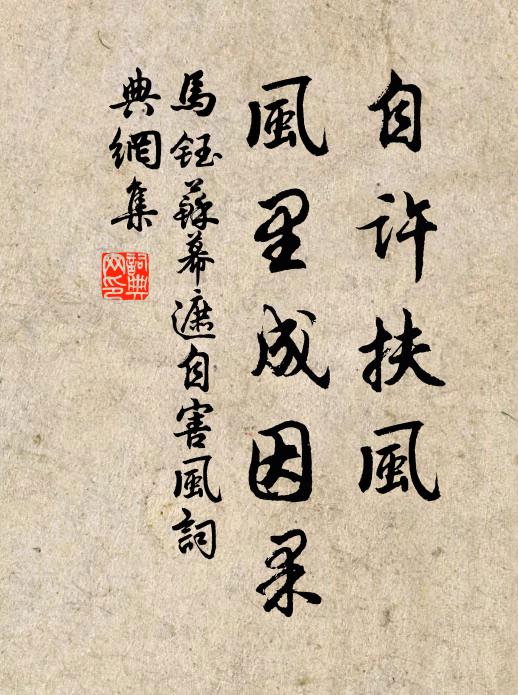 自許扶風
風里成因果
馬鈺蘇幕遮自害風詞
典網集
詞典
网印